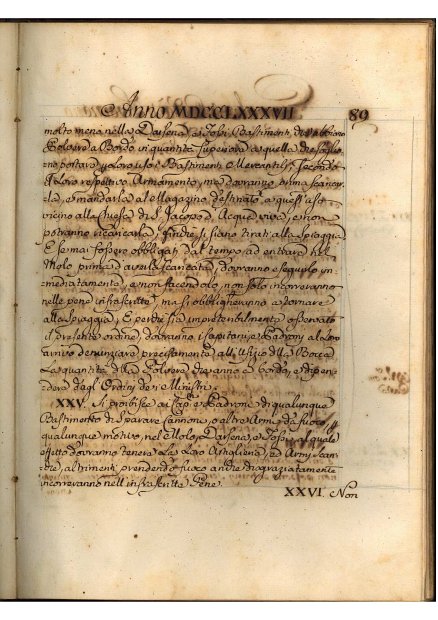 Anno MDCCLXXXVII 89
molto meno nella Darsena, e Fossi Bastimenti, che abbiano
Polvere a Bordo in quantità superiore a quella, che possono
portare per loro uso i Bastimenti Mercantili secondo
il loro respettivo Armamento, ma dovranno prima scaricarla,
e mandarla al Magazzino destinato a quest'effetto
vicino alla Chiesa di S. Jacopo d'Acqueviva, e non
potranno ricaricarla, finchè si siano tirati alla Spiaggia
E se mai fossero obbligati dal tempo ad entrare nel
Molo prima d'averla scaricata, dovranno eseguirlo immediatamente,
e non facendolo, non solo incorreranno
nelle pene infrascritte, ma si obbligheranno a tornare
alla Spiaggia, E perchè sia impreteribilmente osservato
il presente ordine, dovranno i Capitani, e Padroni al loro
arrivo denunziare precisamente all'Ufizio della Bocca
la quantità della Polvere, che avranno a bordo, e dipendere
dagl'Ordini dei Ministri.
XXV. Si proibisce ai Cap.ni e Padroni di qualunque
Bastimento di Sparare Cannone, o altre Armi da fuoco p
qualunque motivo, nel Molo, Darsena, e Fossi, al quale
effetto dovranno tenere la loro Artiglieria, ed Armi scariche,
altrimenti prendendo fuoco anche disgraziatamente
incorreranno nell'infrascritte Pene.
XXVI. Non